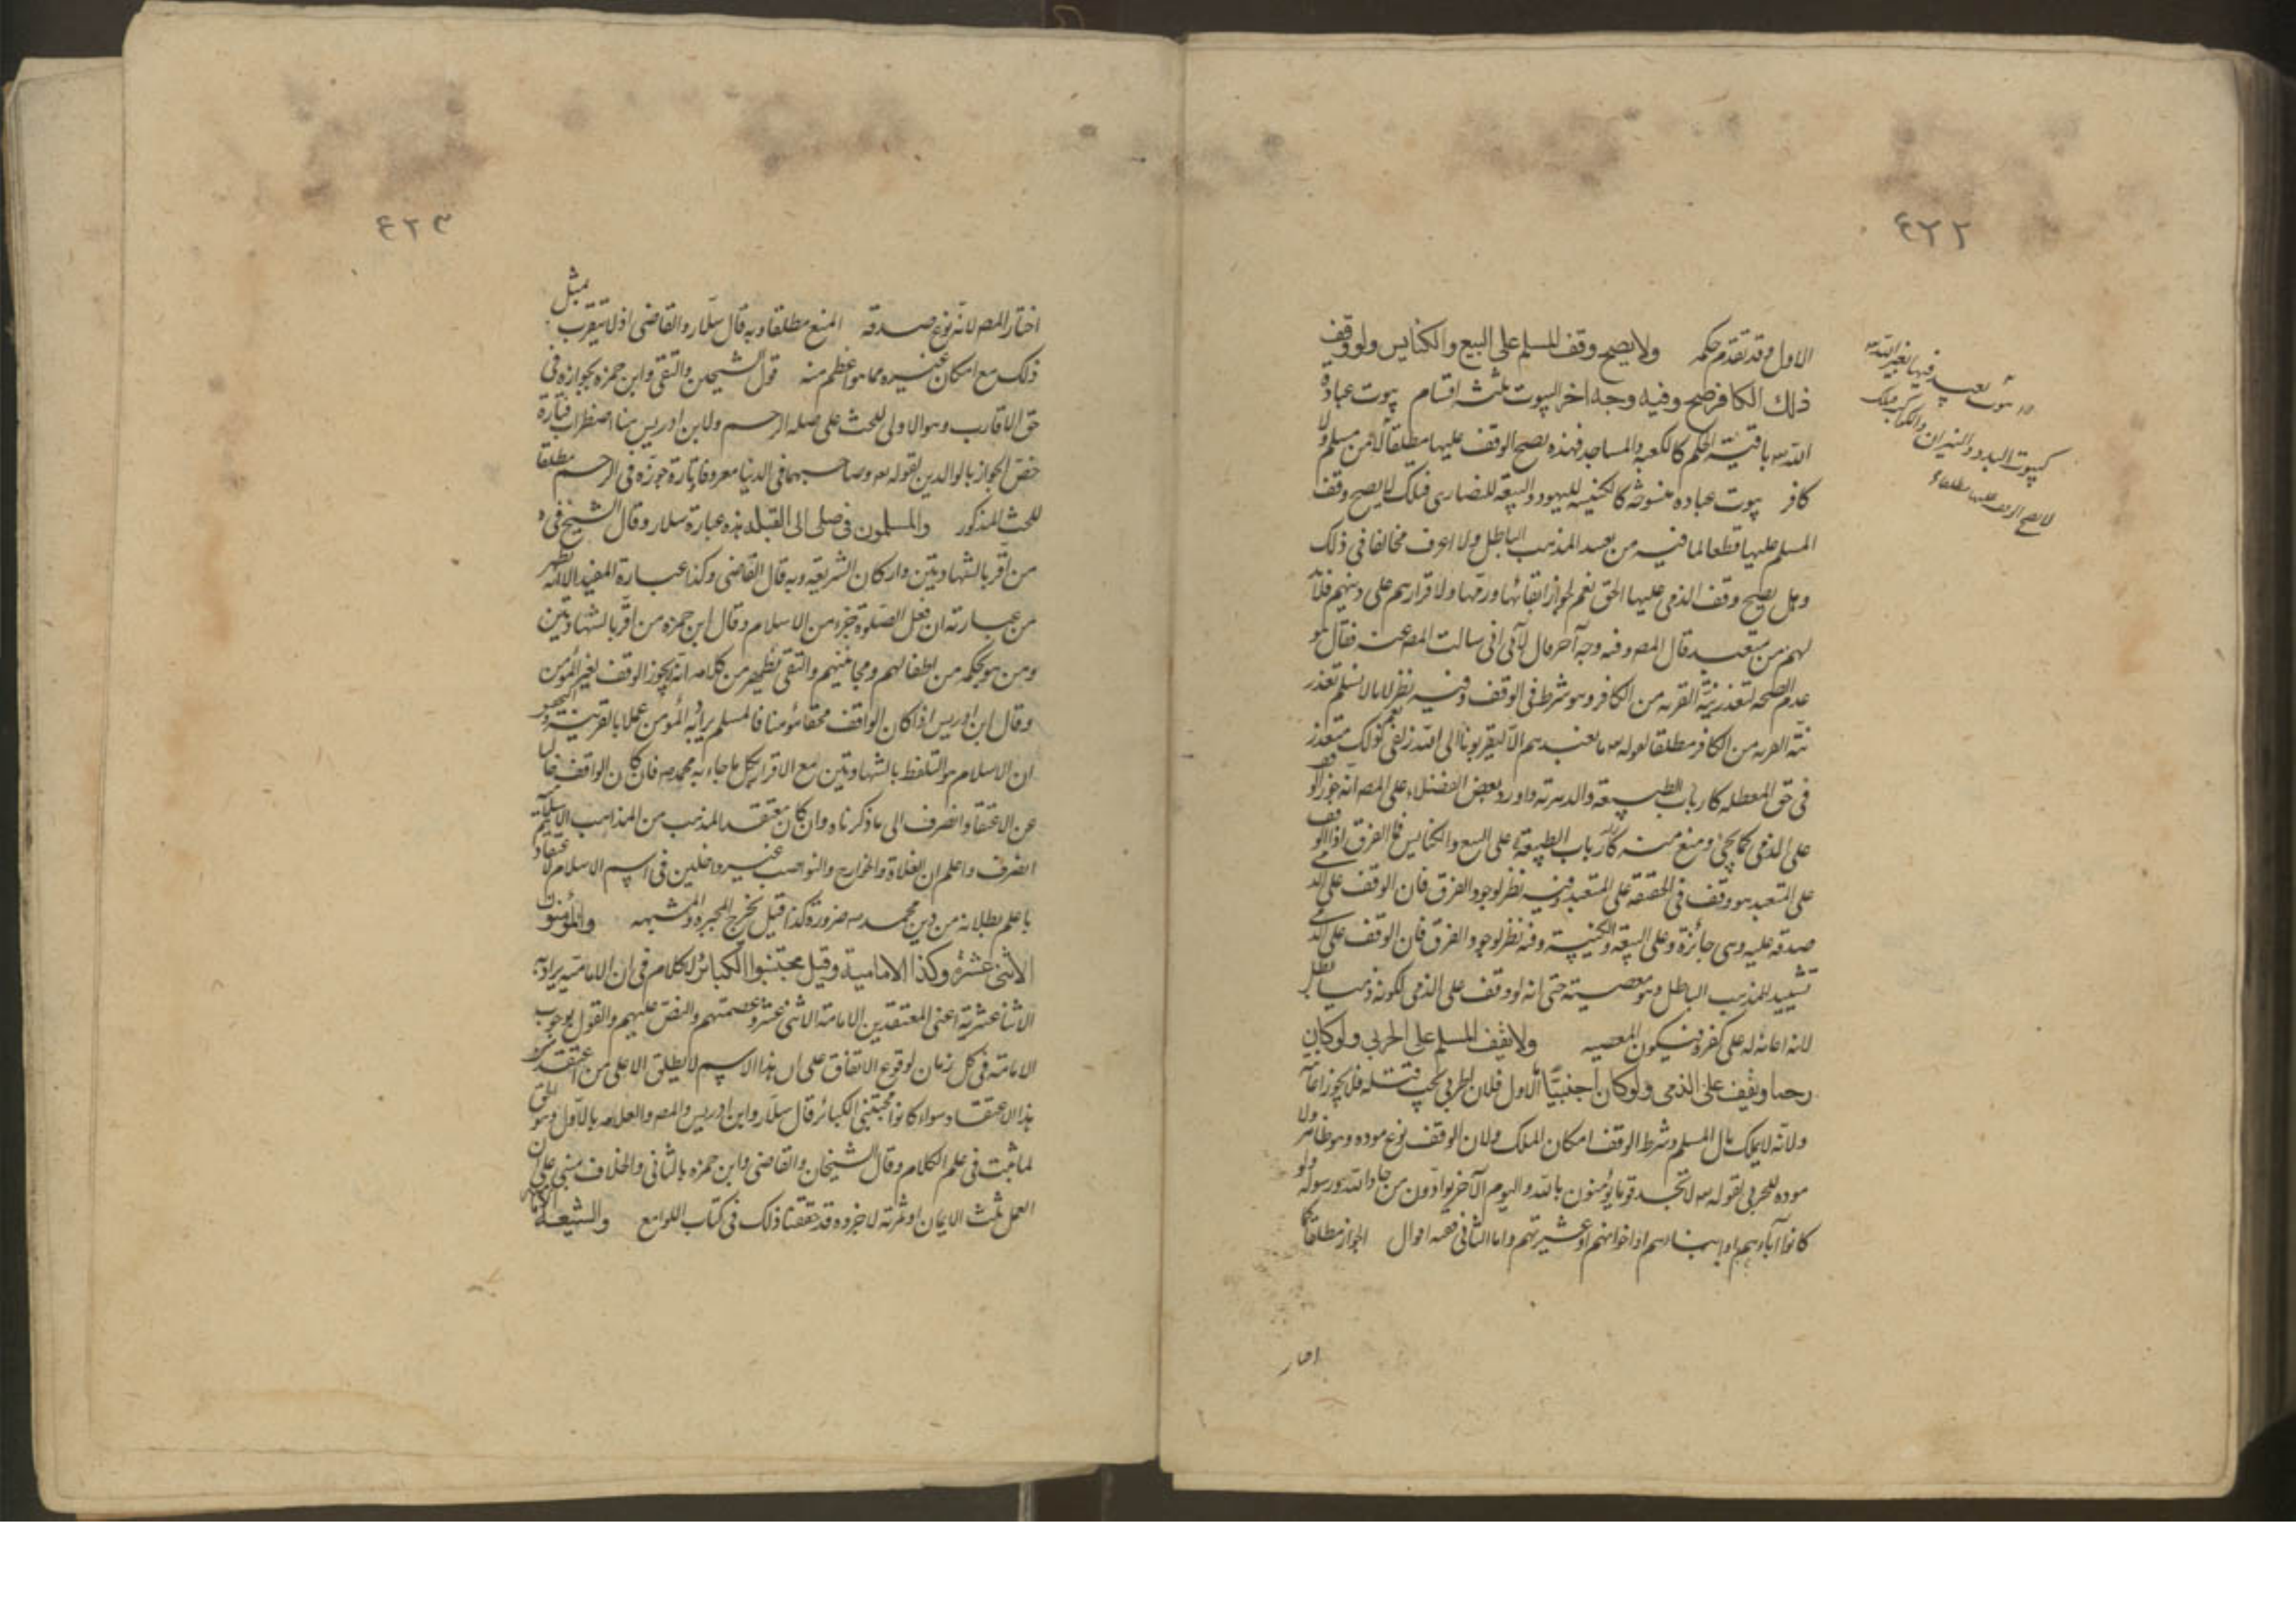 ٤٢٢
الاول وقد تقدم حكمه ولا يصح وقف المسلم على البيع والكنايس ولو وقف
ذلك الكافر صح وفيه وجه اخر البيوت ثلثة اقسام بيوت عبادة
الله باقية الحكم كالكعبه والمساجد فهذه يصح الوقف عليها مطلقا من مسلم ولا
كافر بيوت عباده منسوخة كالكنيسه لليهود والبيعة للنصارى فتلك لا يصح وقف
المسلم عليها قطعا لما فيه من تعبد المذهب الباطل ولا اعرف مخالفا في ذلك
وهل يصح وقف الذمى عليها الحق نعم لجواز ابقائها ورمها ولا قرارهم على دينهم فلابد
لهم من متعبد قال المص وفيه وجه آخر قال الآبى انى سالت المص عنه فقال هو
عدم الصحه لتعذر نية القربه من الكافر وهو شرط في الوقف وفيه نظر لانا لا نسلم تعذر
نية القربه من الكافر مطلقا لقوله ما نعبدهم الا ليقربونا الى الله زلفى نعم ذلك متعذر
في حق المعطله كارباب الطبيعة والدهرية واورد بعض الفضلاء على المص انه جوز الوقف
على الذمى كما يجئ ومنع منه على البيع والكنايس فما الفرق اذ الوقف
على المتعبد هو وقف في الحقيقة على المتعبد وفيه نظر لوجود الفرق فان الوقف على الذمى
صدقه عليه وهى جائزة وعلى البيعة والكنيسة وفيه نظر لوجود الفرق فان الوقف على الذمى
تشييد للمذهب الباطل وهو معصية حتى انه لو وقف على الذمى لكونه ذميا بطل
لانه اعانة له على كفره فيكون المعصيه ولا يقف المسلم على الحربي ولو كان
رحما ويقف على الذمى ولو كان اجنبيا اما الاول فلان الحربي يجب قتله فلا يجوز اعانته
ولانه لا يملك مال المسلم وشرط الوقف امكان الملك ولان الوقف نوع موده وهو ظاهر ولا
موده للحربي لقوله لا تجد قوما يؤمنون بالله واليوم الآخر يوادون من حاد الله ورسوله ولو
كانوا آباءهم او ابناءهم او اخوانهم او عشيرتهم واما الثانى ففيه اقوال الجواز مطلقا
اختار
بيوت يعبد فيها لغير الله
كبيوت البدود والنيران والكواكب فتلك
لا يصح الوقف عليها مطلقا
٤٢٣
اختار المص لانه نوع صدقه المنع مطلقا وبه قال سلار والقاضى اذ لا يتقرب بمثل
ذلك مع امكان غيره مما هو اعظم منه قول الشيخين والتقى وابن حمزه بجوازه فى
حق الاقارب وهو الاولى للحث على صله الرحم ولابن ادريس هنا اضطراب فتارة
خص الجواز بالوالدين لقوله وصاحبهما في الدنيا معروفا وتارة جوزه فى الرحم مطلقا
للحث المذكور والمسلمون فى صلى الى القبله هذه عبارة سلار وقال الشيخ في
من اقر بالشهادتين واركان الشريعه وبه قال القاضى وكذا عبارة المفيد الا انه يظهر
من عبارته ان فعل الصلوة جزء من الاسلام وقال ابن حمزه من اقر بالشهادتين
ومن هو بحكمه من اطفالهم ومجانينهم والتقى يظهر من كلامه انه لا يجوز الوقف لغير المؤمن
وقال ابن ادريس اذا كان الواقف محقا مؤمنا فالمسلم يراد به المؤمن عملا بالقرينة
ان الاسلام هو التلفظ بالشهادتين مع الاقرار بكل ما جاء به محمد فان كان الواقف خاليا
عن الاعتقاد انصرف الى ما ذكرناه وان كان معتقد المذهب من المذاهب الاسلامية
انصرف واعلم ان الغلاة والخوارج والنواصب غير داخلين فى اسم الاسلام لاعتقاد
ما علم بطلانه من دين محمد ضرورة كذا قيل يخرج المجبره والمشبهه والمؤمنون
الاثنى عشرية وكذا الامامية وقيل مجتنبوا الكبائر لا كلام في ان الامامية يراد به
الاثنا عشرية اعنى المعتقدين الامامة الاثنى عشر وعصمتهم والنص عليهم والقول بوجوب
الامامة فى كل زمان لوقوع الاتفاق على ان هذا الاسم لا يطلق الا على من اعتقد
هذا الاعتقاد سواء كانوا مجتنبى الكبائر قال سلار وابن ادريس والمص والعلامه بالاول وهو الحق
لما ثبت فى علم الكلام وقال الشيخان والقاضى وابن حمزه بالثانى والخلاف مبنى على ان
العمل ثلث الايمان او ثمرته لا جزوه وقد حققنا ذلك فى كتاب اللوامع والشيعة الامامية